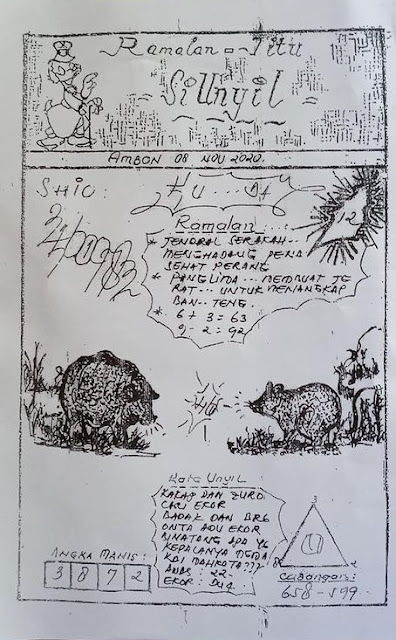 Ramalan - Jitu
Si Unyil
AMBON 08 NOV 2020.
SHIO:
12
Ramalan
* JENDRAL SERAKAH..
MENGHADANG PENA
SEHAT PERANG
* PANGLIMA ... MEMBUAT JE
RAT ... UNTUK MENANGKAP
BAN.. TENG.
* 6 + 3 = 63
9 - 2 = 92
Kata Unyil
KAKAJ DAN ZURO
CARI EKOR
BADAK DAN BRG
ONTA ADU EKOR
BINATANG APA YG
KEPALANYA
MAHKOTA???
AWAS : 22..
EKOR :
ANGKA MANIS :
3 8 7 2
3
4
8 2
Cadangan:
658 - 599